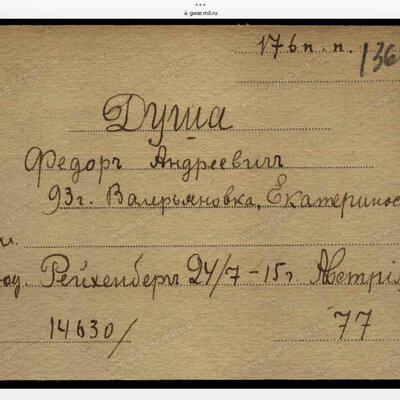 gwar.mil.ru
176 п. п. 136
Душа
Федоръ Андреевичъ
93 г. Валерьяновка, Екатеринос
Рейхенбергъ 24/7 - 15 г Австрія
14630/ 77